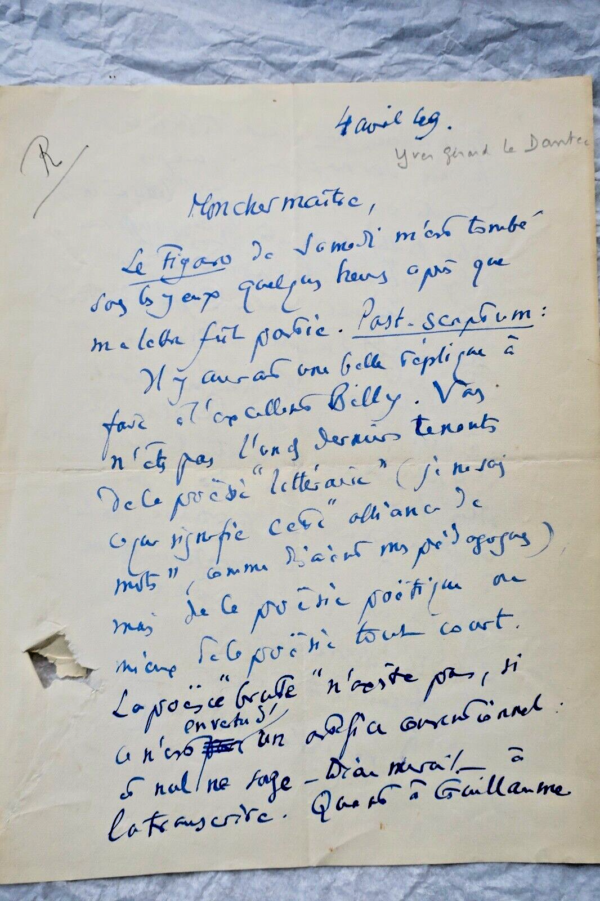 4 avril 49.
R
Yves Gérard le Dantec
Mon cher maître,
Le Figaro de Samedi m'est tombé
sous les yeux quelques heures après que
ma lettre fût partie. Post-scriptum :
Il y aurait une belle réplique à
faire à l'excellent Billy. Vous
n'êtes pas l'un des derniers tenants
de la poësie "littéraire" (je ne sais
ce que signifie cette "alliance de
mots", comme disaient mes pédagogues),
mais de la poësie poëtique ou
mieux de la poësie tout court.
La poësie "brute" n'existe pas, si
ce n'est en vertu d'un artifice conventionnel :
et nul ne songe – Dieu merci! – à
la transcrire. Quant à Guillaume